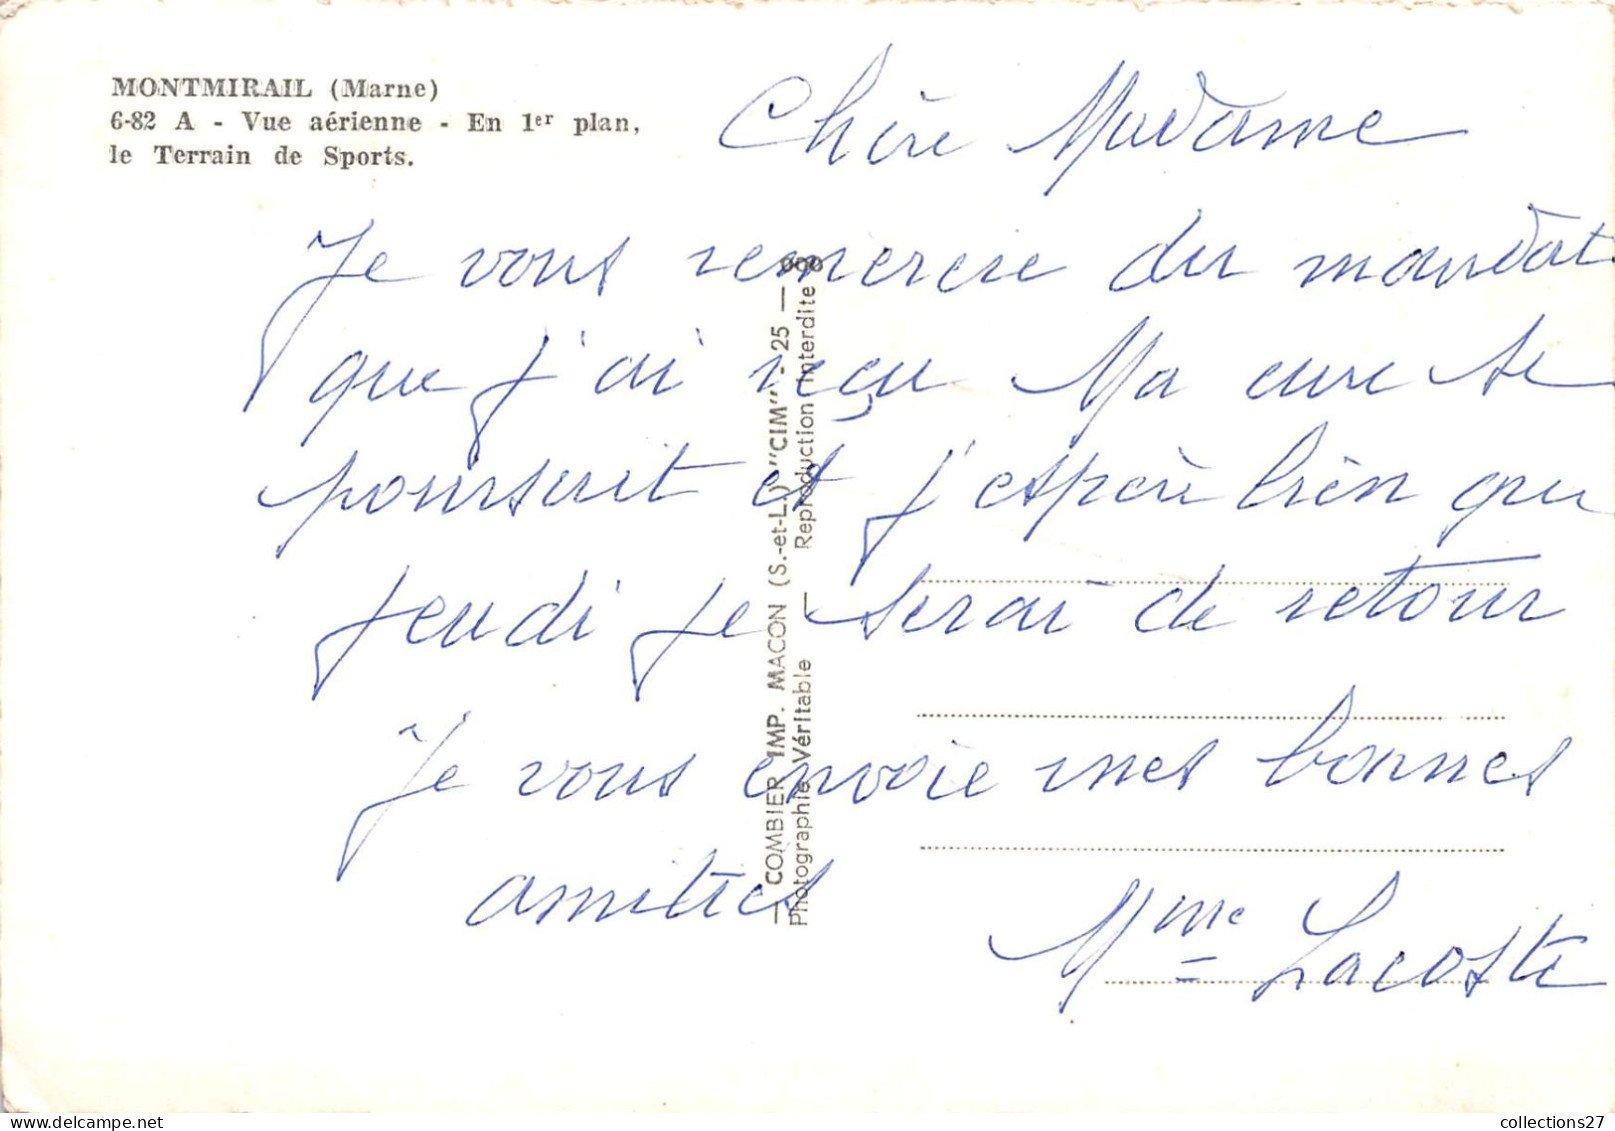 MONTMIRAIL (Marne)
6-82 A - Vue aérienne - En 1er plan,
le Terrain de Sports.
Chère Madame
Je vous remercie du mandat
que j'ai reçu Ma cure se
poursuit et j'espère bien que
jeudi je serai de retour
Je vous envoie mes bonnes
amitiés
Mme Lacoste
— COMBIER IMP. MACON (S.-et-L.) "CIM" - 25 —
Photographie Véritable — Reproduction interdite
collections27